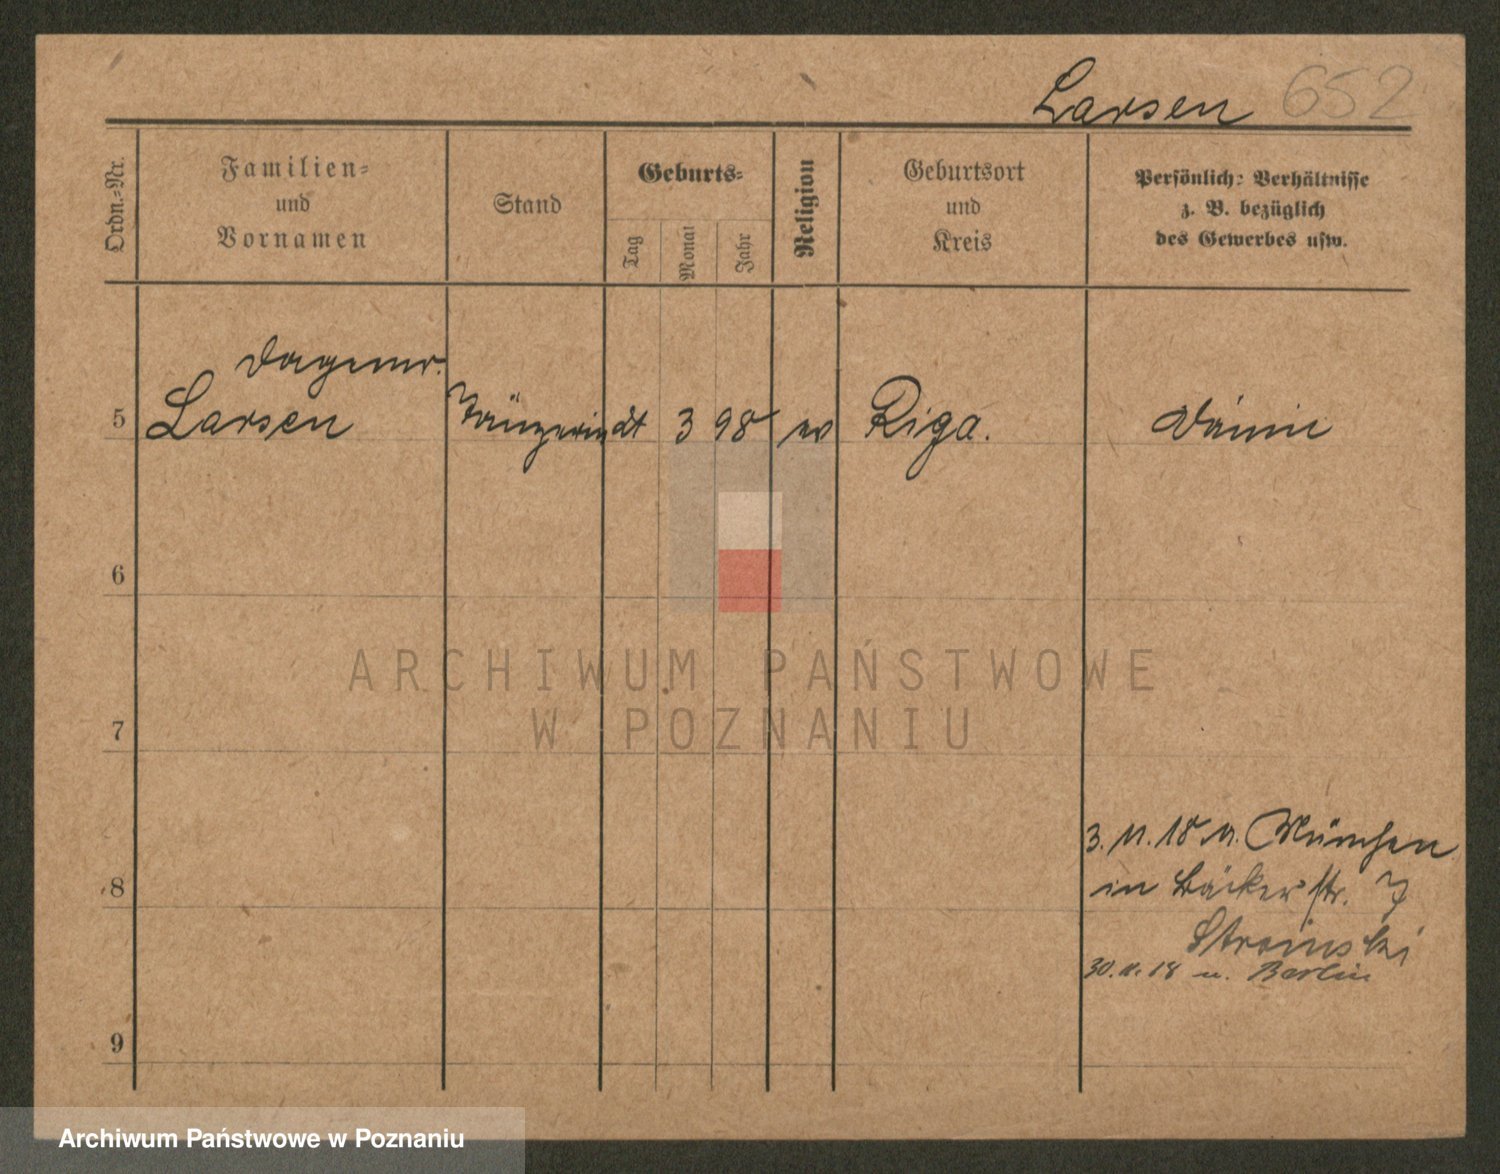 Larsen 652
Ordn.=Nr.
Familien=
und
Vornamen
Stand
Geburts=
Tag
Monat
Jahr
Religion
Geburtsort
und
Kreis
Persönlich= Verhältnisse
z. B. bezüglich
des Gewerbes usw.
Dagmar.
5 Larsen Tänzerin 3 98 ev Riga. Dänin
6
7
8
9
3. 11. 18 v. München
in Bäckerstr. 7
Stroinski
30. 11. 18 n. Berlin
ARCHIWUM PAŃSTWOWE
W POZNANIU
Archiwum Państwowe w Poznaniu